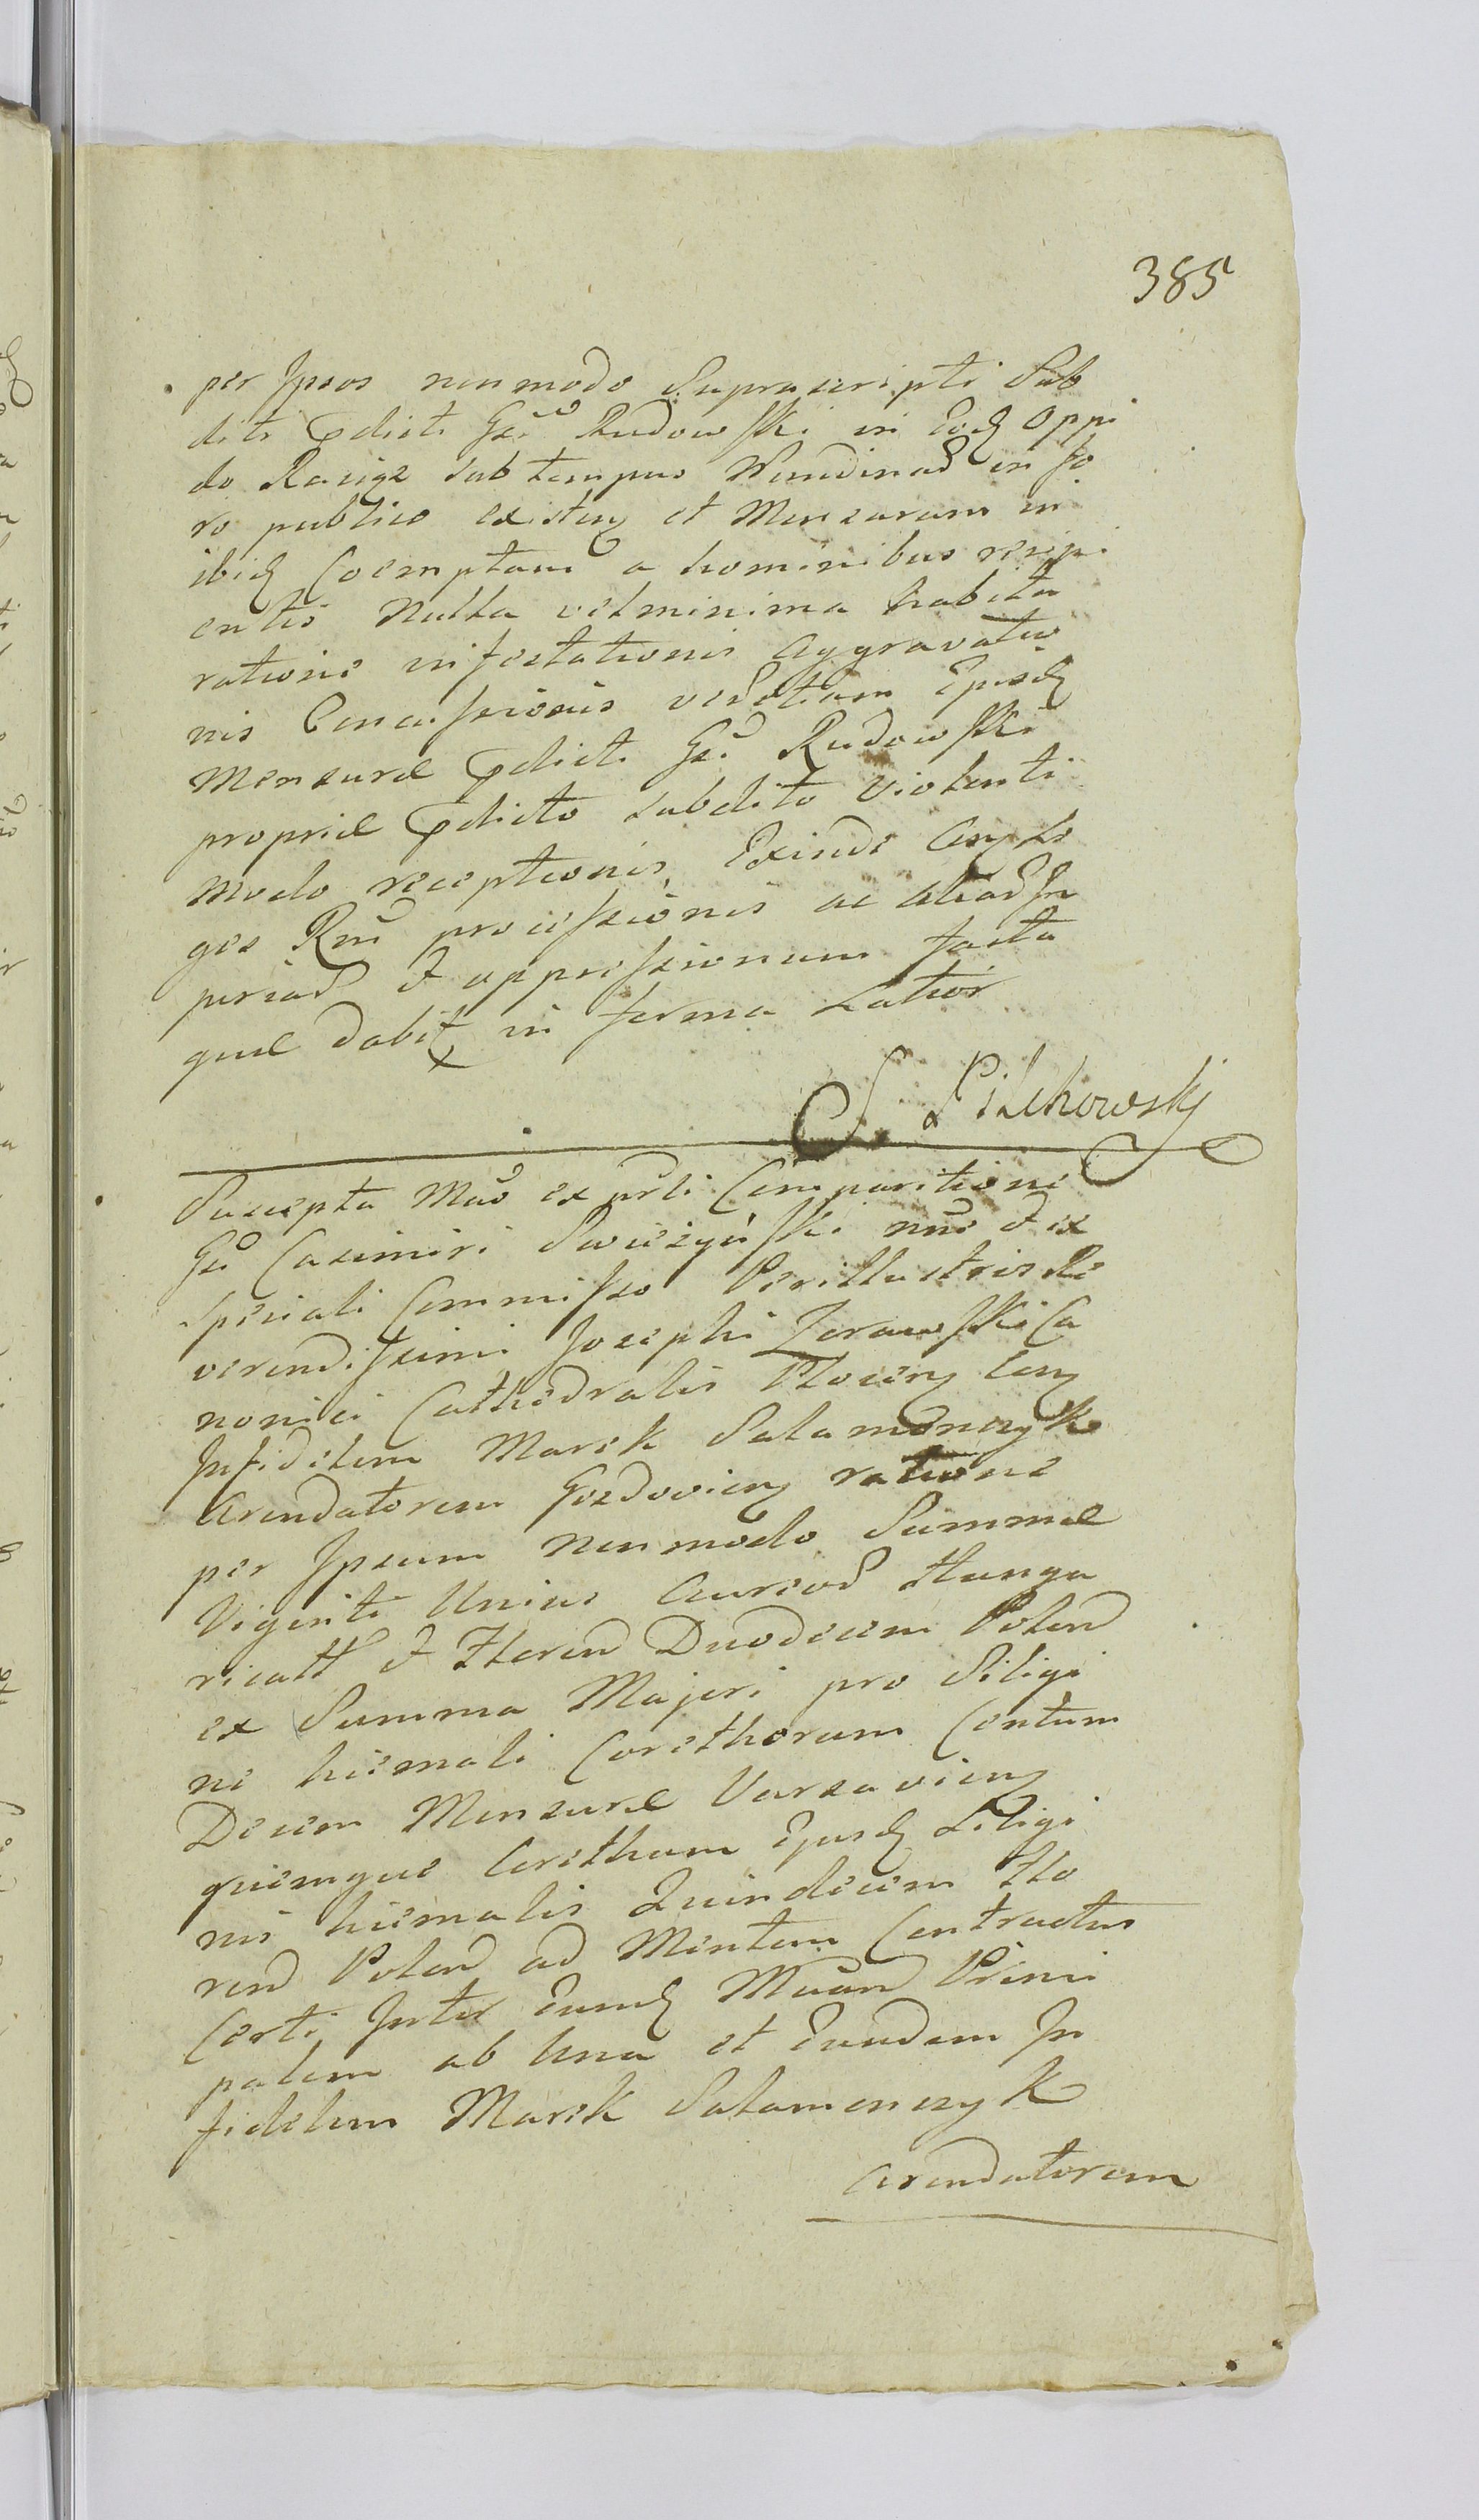 385
per Ipsos nonmodo Suprascripti Sub
diti Pdicti Gsi Rudowski in Eod Oppi
do Raciąz sub tempus Nundinar in fo
ro publico existen et Mensuram in
ibid Coemptam a hominibus recipi
entis Nulla velminima habita
ratione infestationis Aggravatio
nis Concussionis verotiam Ejusd
Mensuræ Pdicti Gsi Rudowski
propriæ Pdicto subdito violenti
modo receptionis, Exinde
ges processionis ac aliar In
juriar & oppressionum facta
quæ dabit in forma Latior
S. Pilchowskj
Suscepta Mus ex prti Comparitione
Gsi Casimiri Swiezyński nne & ex
speciali Commisso Perillustris Re
verendissimi Josephi Zorawski Ca
nonici Cathedralis Plocen Con
Infidelem Marek Salamonczyk
Arendatorem Gozdovien ratione
per Ipsum nonmodo Summæ
Viginti Unius Aureor Hunga
rical & Floren Duodecem Polon
ex Summa Majori pro Siligi
ne hiemali Corethorum Centum
Decem Mensuræ Varsavien
quemque Corethum Ejusd Siligi
nis hiemalis Quindecem Flo
ren Polon ad Mentem Contractus
Certi Inter Eund Princi
palem ab Una et Eundem In
fidelem Marek Salamonczyk
Arendatorem